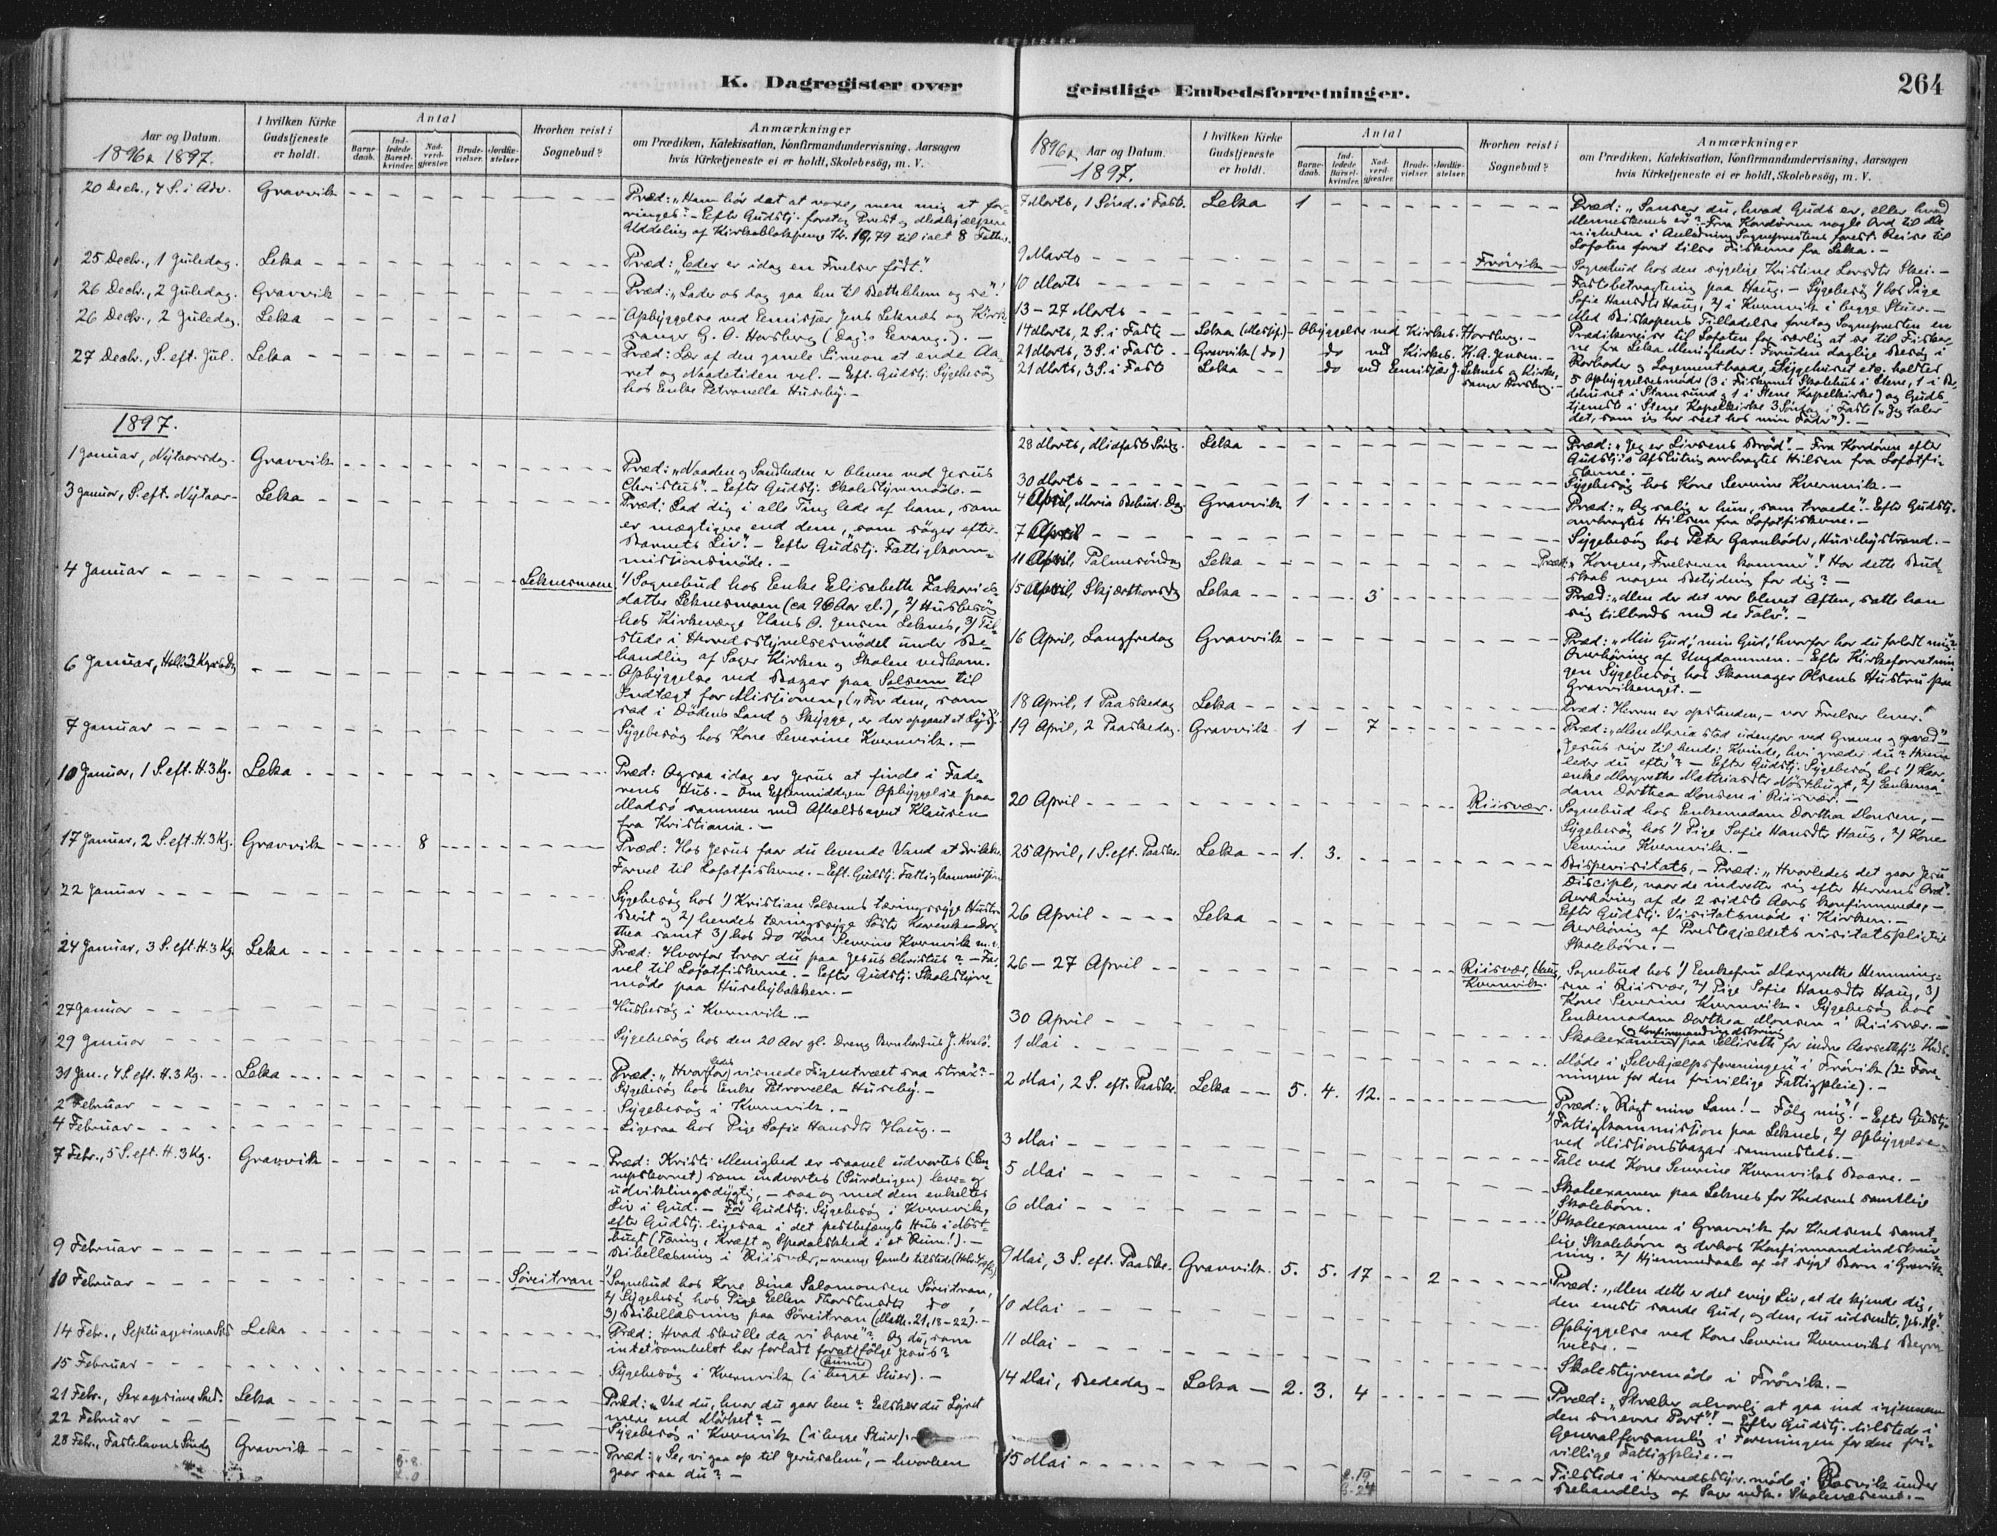 K. Dagregister over
Aar og Datum.
1896 & 1897.
I hvilken Kirke
Gudstjeneste
er holdt.
Antal
Barne-
daab.
Ind-
ledede
Barsel-
kvinder.
Nad-
verd-
gjæster.
Brude-
vielser.
Jordfæ-
stelser.
Hvorhen reist i
Sognebud?
Anmærkninger
om Prædiken, Katekisation, Konfirmandundervisning, Aarsagen
hvis Kirketjeneste ei er holdt, Skolebesøg, m. V.
20 Decbr., 4 S. i Adv. Gravvik
Præd: „Ham bør det at voxe, men mig at for-
ringes“. – Efter Gudstj. foretog Præst og Medhjælpere
Uddeling af Kirkeblokpenge Kr. 19,79 til ialt 8 Fattige.
25 Decbr., 1 Juledag. Leka
Præd: „Eder er idag en Frelser født“.
26 Decbr., 2 Juledag. Gravvik
Præd: „Lader os dog gaa hen til Bethlehem og se“!
26 Decbr., 2 Juledag. Leka
Opbyggelse ved Emissær Jens Leknes og Kirke-
sanger G. A. Horsberg (Dag's Evang.). –
27 Decbr., S. eft. Jul. Leka
Præd: Lær af den gamle Simeon at ende Aa-
ret og Naadetiden vel. – Eft. Gudstj. Sygebesøg
hos Enke Petronella Huseby. –
1897.
1 Januar, Nytaarsdag. Gravvik
Præd: „Naaden og Sandheden er bleven ved Jesus
Christus“. – Efter Gudstj. Skolestyremøde. –
3 Januar, S. eft. Nytaar – Leka
Præd: Lad dig i alle Ting lede af ham, som
er mægtigere end dem, „som søger efter
Barnets Liv“. – Efter Gudstj. Fattigkom-
missionsmøde. –
4 Januar Leknesmoen
1/ Sognebud hos Enke Elisabeth Zakarias-
datter Leknesmoen (ca 90 Aar gl.), 2/ Husbesøg
hos Kirkeværge Hans O. Jensen Leknes, 3/ Til-
stede i Herredsstyrelsesmødet under Be-
handling af Sager Kirken og Skolen vedkom.
6 Januar, Hell. 3 Kgrs Dg
Opbyggelse ved Bazar paa Solsem til
Indtægt for Missionen, („For dem, som
sad i Dødens Land og Skygge, er der opgaaet et Lys“).
7 Januar
Sygebesøg hos Kone Severine Kvernvik. –
10 Januar, 1 S. eft. H. 3 Kg. Leka
Præd: Ogsaa idag er Jesus at finde i Fade-
rens Hus. – Om Eftermiddagen Opbyggelse paa
Madsø sammen med Afholdsagent Klausen
fra Kristiania. –
17 Januar, 2 S. eft. H. 3 Kg. Gravvik 8
Præd: Hos Jesus faar du levende Vand at drikke.
Farvel til Lofotfiskerne. – Eft. Gudstj. Fattigkommission
22 Januar
Sygebesøg hos 1/ Kristian Solsems tæringssyge Hustru
Berit og 2/ hendes tæringssyge Søster
thea samt 3/ hos do Kone Severine Kvernvik
24 Januar, 3 S. eft. H. 3 Kg. Leka
Præd: Hvorfor tror du paa Jesus Christus? – Far-
vel til Lofotfiskerne. – Efter Gudstj. Skolestyre-
møde paa Husebybakken. –
27 Januar
Husbesøg i Kvernvik. –
29 Januar
Sygebesøg hos den 20 Aar gl. Dreng Bernhardus J. Kvalø.
31 Jan., 4 S. eft. H. 3 Kg. Leka
Præd: „Hvorfor visnede Figentræet saa strax“? –
Sygebesøg hos Enke Petronella Huseby. –
2 Februar
Sygebesøg i Kvernvik. –
4 Februar
Ligesaa hos Pige Sofie Hansdtr Haug. –
7 Febr., 5 S. eft. H. 3 Kg. Gravvik
Præd: Kristi Menighed er saavel udvortes (Sen-
nepskornet) som indvortes (Surdeigen) leve- og
udviklingsdygtig, – saa og med den enkeltes
Liv i Gud. – Før Gudstj. Sygebesøg i Kvernvik,
efter Gudstj. ligesaa i det pestbefængte Hus i Møst-
bugt (Tæring, Kræft og Spedalskhed i et Rum!). –
9 Februar
Bibellæsning i Riisvær, – mange Gamle tilstede
10 Februar Søreitran
1/ Sognebud hos Kone Dina Salomonsen Søreitran,
2/ Sygebesøg hos Pige Ellen Thorstensdtr do,
3/ Bibellæsning paa Søreitran (Math. 21, 18–22). –
14 Febr., Septuagesima Leka
Præd: Hvad skulle da vi have“? Og du, som
intetsomhelst har forladt forat kunne følge Jesus?
15 Februar
Sygebesøg i Kvernvik (i begge Stuer). –
21 Febr., Sexagesima Leka
Præd: „Ved du, hvor du gaar hen? Elsker du Lyset
mere end Mørket? –
22 Februar
Sygebesøg i Kvernvik (i begge Stuer). –
28 Febr., Fastelavns Sndg Gravvik
Præd: „Se, vi gaa op til Jerusalem“, – hvorhen
gaar saa du? –
G. 8.
L. 0
geistlige Embedsforretninger.
264
1896 &
Aar og Datum.
1897.
I hvilken Kirke
Gudstjeneste
er holdt.
Antal
Barne-
daab.
Ind-
ledede
Barsel-
kvinder.
Nad-
verd-
gjæster.
Brude-
vielser.
Jordfæ-
stelser.
Hvorhen reist i
Sognebud?
Anmærkninger
om Prædiken, Katekisation, Konfirmandundervisning, Aarsagen
hvis Kirketjeneste ei er holdt, Skolebesøg, m. V.
7 Marts, 1 Sønd. i Faste. Leka 1
Præd: „Sanser du, hvad Guds er, eller hvad
Menneskenes er“? Fra Kordøren nogle Ord til Me-
nigheden i Anledning Sognepræstens forest. Reise til
Lofoten forat tilse Fiskerne fra Leka. –
9 Marts Frøvik
Sognebud hos den sygelige Kristine Larsdtr Skei. –
10 Marts
Fastebetragtning paa Haug. – Sygebesøg 1/ hos Pige
Sofie Hansdtr Haug, 2/ i Kvernvik i begge Stuer. –
13 – 27 Marts
Med Biskopens Tilladelse foretog Sognepræsten en
Prædikereise til Lofoten for særlig at se til Fisker-
ne fra Leka Menigheder. Foruden daglige Besøg i
Rorboder og Logementbaade, Sygehuset etc. holdtes
5 Opbyggelsesmøder (3 i Fiskernes Skolehus i Stene, 1 i Be-
dehuset i Stamsund og 1 i Stene Kapelkirke) og Guds-
tjeneste i Stene Kapelkirke 3 Søndag i Faste („Jeg taler
det, som jeg har seet hos min Fader“). –
14 Marts, 2 S. i Faste – Leka (Messef.) – Obyggelse ved Kirkes. Horsberg. –
21 Marts, 3 S. i Faste – Gravvik (do) do ved Kirkes. H. A. Jensen. –
21 Marts, 3 S. i Faste Leka do ved Emissær J. Leknes og Kirke-
sanger Horsberg. –
28 Marts, Midfaste Søndg. Leka
Præd: „Jeg er Livsens Brød“. – Fra Kordøren efter
Gudstj's Afslutning overbragtes Hilsen fra Lofotfi-
skerne. –
30 Marts
Sygebesøg hos Kone Severine Kvernvik. –
4 April, Maria Bebud. Dag Gravvik 1
Præd: „Og salig er hun, som troede“. Efter Gudstj.
overbragtes Hilsen fra Lofotfiskerne. –
7 April
Sygebesøg hos Peter Garnbøder, Husebystrand. –
11 April, Palmesøndag Leka
Præd: „Kongen, Frelseren kommer“! Har dette Bud-
skab nogen Betydning for dig? –
15 April, Skjærthorsdag Leka 3
Præd: „Men der det var blevet Aften, satte han
sig tilbords med de Tolv“.
16 April, Langfredag Gravvik
Præd: „Min Gud, min Gud, hvorfor har du forladt mig“?
Overhøring af Ungdommen. – Efter Kirkeforretnin-
gen Sygebesøg hos Skomager Olsens Hustru paa
Gravvikenget. –
18 April, 1 Paaskedag Leka
Præd: Herren er opstanden, – vor Frelser lever!
19 April, 2 Paaskedag. Gravvik. 1 – 7
Præd: „Men Maria stod udenfor ved Graven og græd“ –
Jesus siger til hende: Kvinde, hvi græder du? Hvem
leder du efter? – Efter Gudstj. Sygebesøg hos 1/ Kaar-
enke Margrethe Mathiasdtr Møstbugt, 2/ Enkema-
dam Dorthea Monsen i Riisvær. –
20 April Riisvær.
Sognebud hos Enkemadam Dorthea Monsen, –
Sygebesøg hos 1/ Pige Sofie Hansdtr Haug, 2/ Kone
Severine Kvernvik. –
25 April, 1 S. eft. Paaske. Leka 1. 3.
Bispevisitats, – Præd: „Hvorledes det gaar Jesu
Discipel, naar de indretter sig efter Herrens Ord“.
Overhøring af de 2 sidste Aars Konfirmerede, –
Efter Gudstj. Visitatsmøde i Kirken. –
26 April Leka
Overhøring af Prestegjældets visitatspligtige
Skolebørn. –
26 – 27 April Riisvær, Haug,
Kvernvik.
Sognebud hos 1/ Enkefru Margrethe Hemming-
sen i Riisvær, 2/ Pige Sofie Hansdtr Haug, 3/
Kone Severine Kvernvik. Sygebesøg hos
Enkemadam Dorthea Monsen i Riisvær. –
30 April
Skoleexamen paa for indre
1 Mai
Møde i „Selvhjælpsforeningen“ i Frøvik (: Fore-
ningen for den frivillige Fattigpleie). –
2 Mai, 2 S. eft. Paaske. Leka 5. 4. 12.
Præd: „Røgt mine Lam! – Følg mig“! – Efter Gudstj.
1/ Fattigkommission paa Leknes, 2/ Opbyggelse
ved Missionsbazar sammesteds. –
3 Mai
Tale ved Kone Severine Kvernviks Baare. –
5 Mai
Skoleexamen paa Leknes for Kredsens samtlige
Skolebørn.
6 Mai
1/ Skoleexamen i Gravvik for Kredsens samt-
lige Skolebørn og derhos Konfirmandindskriv-
ning. 2/ Hjemmedaab af et sygt Barn i Gravvik.
9 Mai, 3 S. eft. Paaske. Gravvik. 5. 5. 17 2
Præd: „Men dette er det evige Liv, at de kjende dig,
den eneste sande Gud, og den, du udsendte, Jes. Kr.“
10 Mai
Opbyggelse ved Kone Severine Kvernviks Begra-
velse. –
11 Mai
Skolestyremøde i Frøvik. –
14 Mai, Bededag – Leka – 2. 3. 4
Præd: „Stræber alvorlig at gaa ind igjennem
den snevre Port“! – Efter Gudstj. tilstede i
Generalforsamling i Foreningen for den fri-
villige Fattigpleie. –
15 Mai
Tilstede i Herredsstyr. møde i under
Behandling af Sager vedk. Skolevæsenet. –
L. 19
G. 24